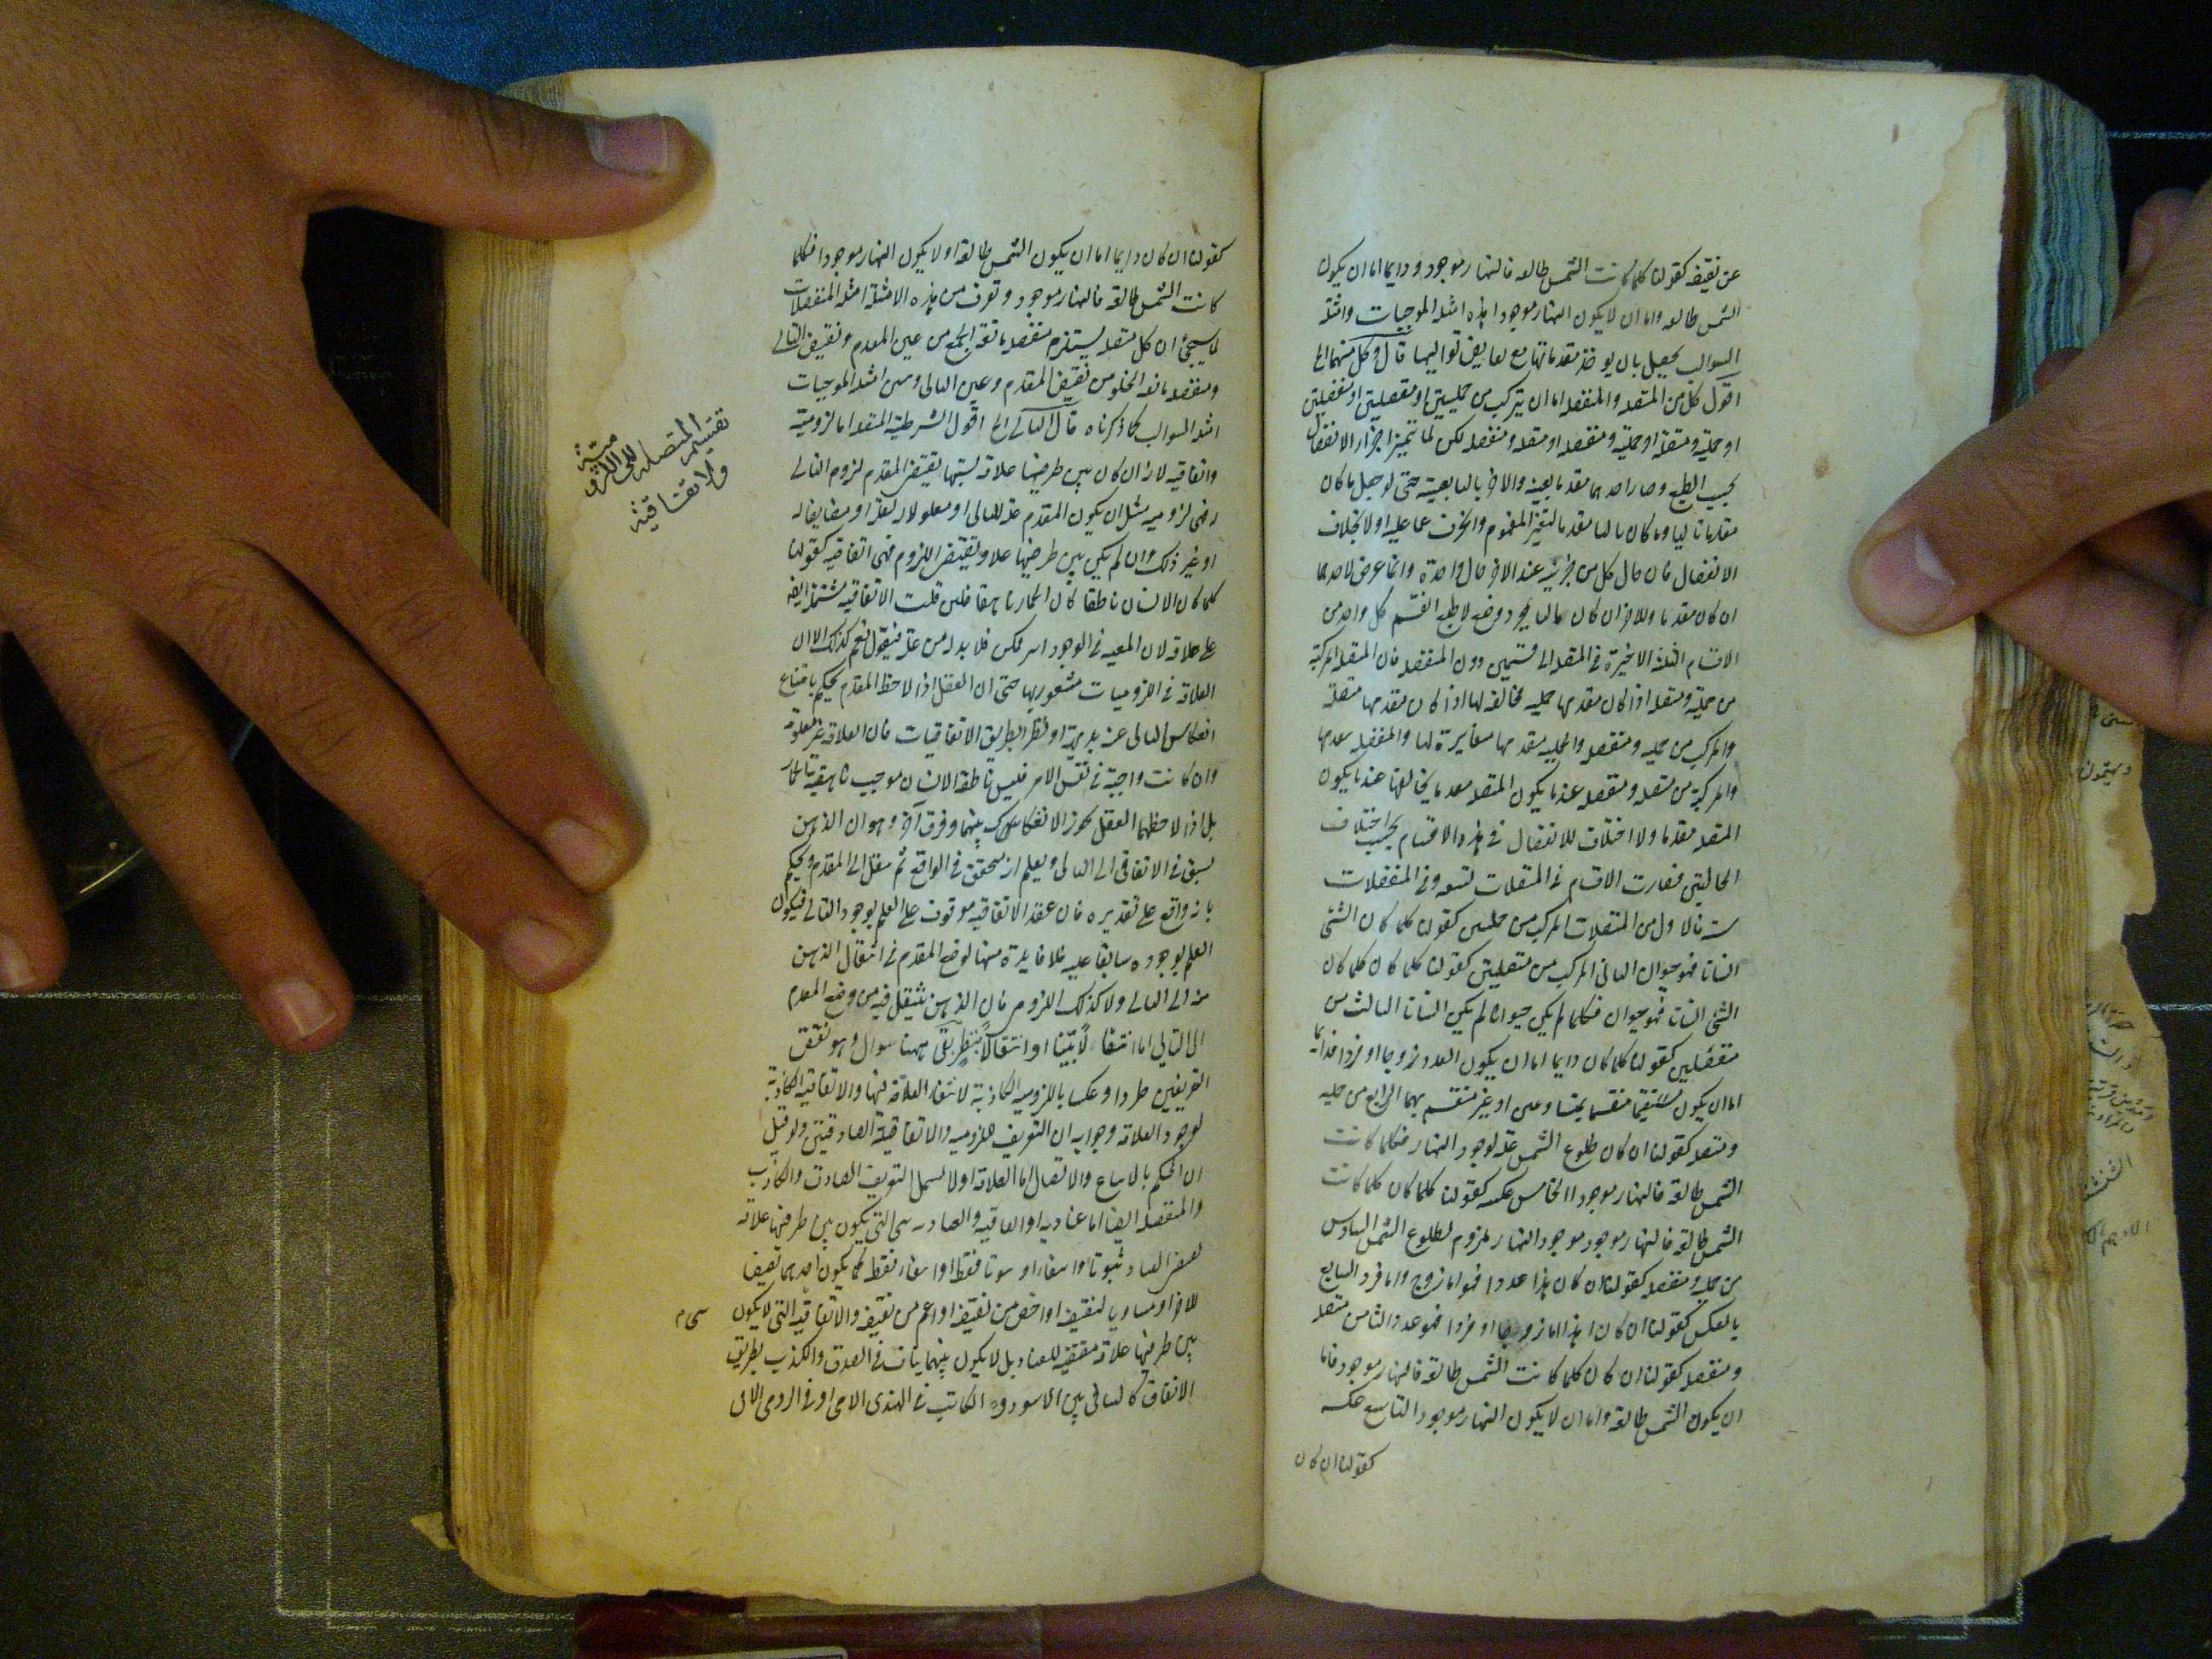 عن نقيضه كقولنا كلما كانت الشمس طالعه فالنهار موجود ودايما اما ان يكون
الشمس طالعه واما ان لا يكون النهار موجودا هذه امثله الموجبات وامثلة
السوالب يحصل بان يوخذ مقدماتها مع نقايض تواليها قال وكل منهما الخ
اقول كل من المتصله والمنفصله اما ان يتركب من حمليتين او متصلتين او منفصلتين
او حملية ومتصلة او حملية ومنفصله او متصله ومنفصله لكن لما تتميز اجزاء الاتصال
بحسب الطبع وصار احدهما مقدما بعينه والاخر تاليا بعينه حتى لو جعل ما كان
مقدما تاليا وما كان تاليا مقدما لتغير المفهوم وانحرف عما عليه اولا بخلاف
الانفصال فان حال كل من جزئيه عند الاخر حال واحدة وانما عرض لاحدهما
ان كان مقدما وللاخر ان كان تاليا بمجرد وضع لا طبع انقسم كل واحد من
الاقسام الثلثة الاخيرة في المتصله الى قسمين دون المنفصله فان المتصله المركبة
من حملية ومتصله اذا كان مقدمها حمليه مخالفة لها اذا كان مقدمها متصلة
والمركب من حمليه ومنفصله والحمليه مقدمها مغايرة لها والمنفصله مقدمها
والمركبة من متصله ومنفصله عند ما يكون المتصله مقدما يخالفها عند ما يكون
المنفصله مقدما ولا اختلاف للانفصال في هذه الاقسام بحسب اختلاف
الحالتين فصارت الاقسام في المتصلات تسعه وفي المنفصلات
ستة فالاول من المتصلات المركب من حمليتين كقولنا كلما كان الشئ
انسانا فهو حيوان الثاني المركب من متصلتين كقولنا كلما كان كلما كان
الشئ انسانا فهو حيوان فكلما لم يكن حيوانا لم يكن انسانا الثالث من
منفصلتين كقولنا كلما كان دايما اما ان يكون العدد زوجا او فردا فدايما
اما ان يكون منقسما بمتساويين او غير منقسم بهما الرابع من حمليه
ومتصله كقولنا ان كان طلوع الشمس علة لوجود النهار فكلما كانت
الشمس طالعة فالنهار موجود الخامس عكسه كقولنا كلما كان كلما كانت
الشمس طالعة فالنهار موجود فوجود النهار ملزوم لطلوع الشمس السادس
من حمليه ومنفصله كقولنا ان كان هذا عددا فهو اما زوج واما فرد السابع
بالعكس كقولنا ان كان هذا اما زوجا او فردا فهو عدد الثامن من متصله
ومنفصله كقولنا ان كان كلما كانت الشمس طالعة فالنهار موجود فاما
ان يكون الشمس طالعة واما ان لا يكون النهار موجودا التاسع عكسه
كقولنا ان كان
كقولنا ان كان دايما اما ان يكون الشمس طالعة او لا يكون النهار موجودا فكلما
كانت الشمس طالعة فالنهار موجود وتعرف من هذه الامثلة امثله المنفصلات
لما سيجئ ان كل متصله يستلزم منفصله مانعة الجمع من عين المقدم ونقيض التالي
ومنفصله مانعة الخلو من نقيض المقدم وعين التالي ومن امثله الموجبات
امثله السوالب كما ذكرناه قال الثالث الخ اقول الشرطية المتصله اما لزومية
واتفاقيه لانه ان كان بين طرفيها علاقه بسببها يقتضى المقدم لزوم التالي
فهى لزوميه مثل ان يكون المقدم علة للتالى او معلولا له او مضايفا له
او غير ذلك وان لم يكن بين طرفيها علاقه تقتضى اللزوم فهى اتفاقيه كقولنا
كلما كان الانسان ناطقا كان الحمار ناهقا فان قلت الاتفاقيه مشتملة ايضا
على علاقه لان المعيه في الوجود امر ممكن فلا بد له من علة فنقول نعم كذلك الا ان
العلاقه في اللزوميات مشعور بها حتى ان العقل اذا لاحظ المقدم يحكم بامتناع
انفكاك التالى عنه بديهة او نظرا بطريق الاتفاقيات فان العلاقه غير معلومة
وان كانت واجبة في نفس الامر فليس ناطقية الانسان موجب ناهقية الحمار
بل اذا لاحظهما العقل يجوز الانفكاك بينهما وفرق آخر وهو ان الذهن
يسبق في الاتفاقى الى التالى ويعلم انه متحقق في الواقع ثم ينتقل الى المقدم ويحكم
بانه واقع على تقديره فان عقد الاتفاقيه موقوف على العلم بوجود التالى فيكون
العلم بوجوده سابقا عليه فلا فايدة منها لوضع المقدم في انتقال الذهن
منه الى التالى ولا كذلك اللزوم فان الذهن ينتقل فيه من وضع المقدم
الى التالي اما انتقالا بيّنا او انتقالاً بنظر بقى ههنا سوال وهو نقض
التعريفين طردا وعكسا باللزوميه الكاذبة لانتفاء العلاقه فيها والاتفاقيه الكاذبة
لوجود العلاقه وجوابه ان التعريف للزوميه والاتفاقية الصادقتين ولو قيل
ان الحكم بالاتباع والاتصال اما لعلاقة او لا لشمل التعريف الصادق والكاذب
والمنفصله ايضا اما عناديه او اتفاقيه والعناديه هى التى يكون بين طرفيها علاقه
لعناد ثبوتا وانتفاء او ثبوتا فقط او انتفاء فقط كما يكون احدهما نقيضا
للاخر او مساويا لنقيضه او اخص من نقيضه او اعم من نقيضه والاتفاقيه التى لا يكون
بين طرفيها علاقه مقتضيه للعناد بل لا يكون بينهما تناف في الصدق والكذب بطريق
الاتفاق كالتنافى بين الاسود و الكاتب في الهندى الامى او في الرومى
تقسيم المتصله
الى اللزومية
والاتفاقية